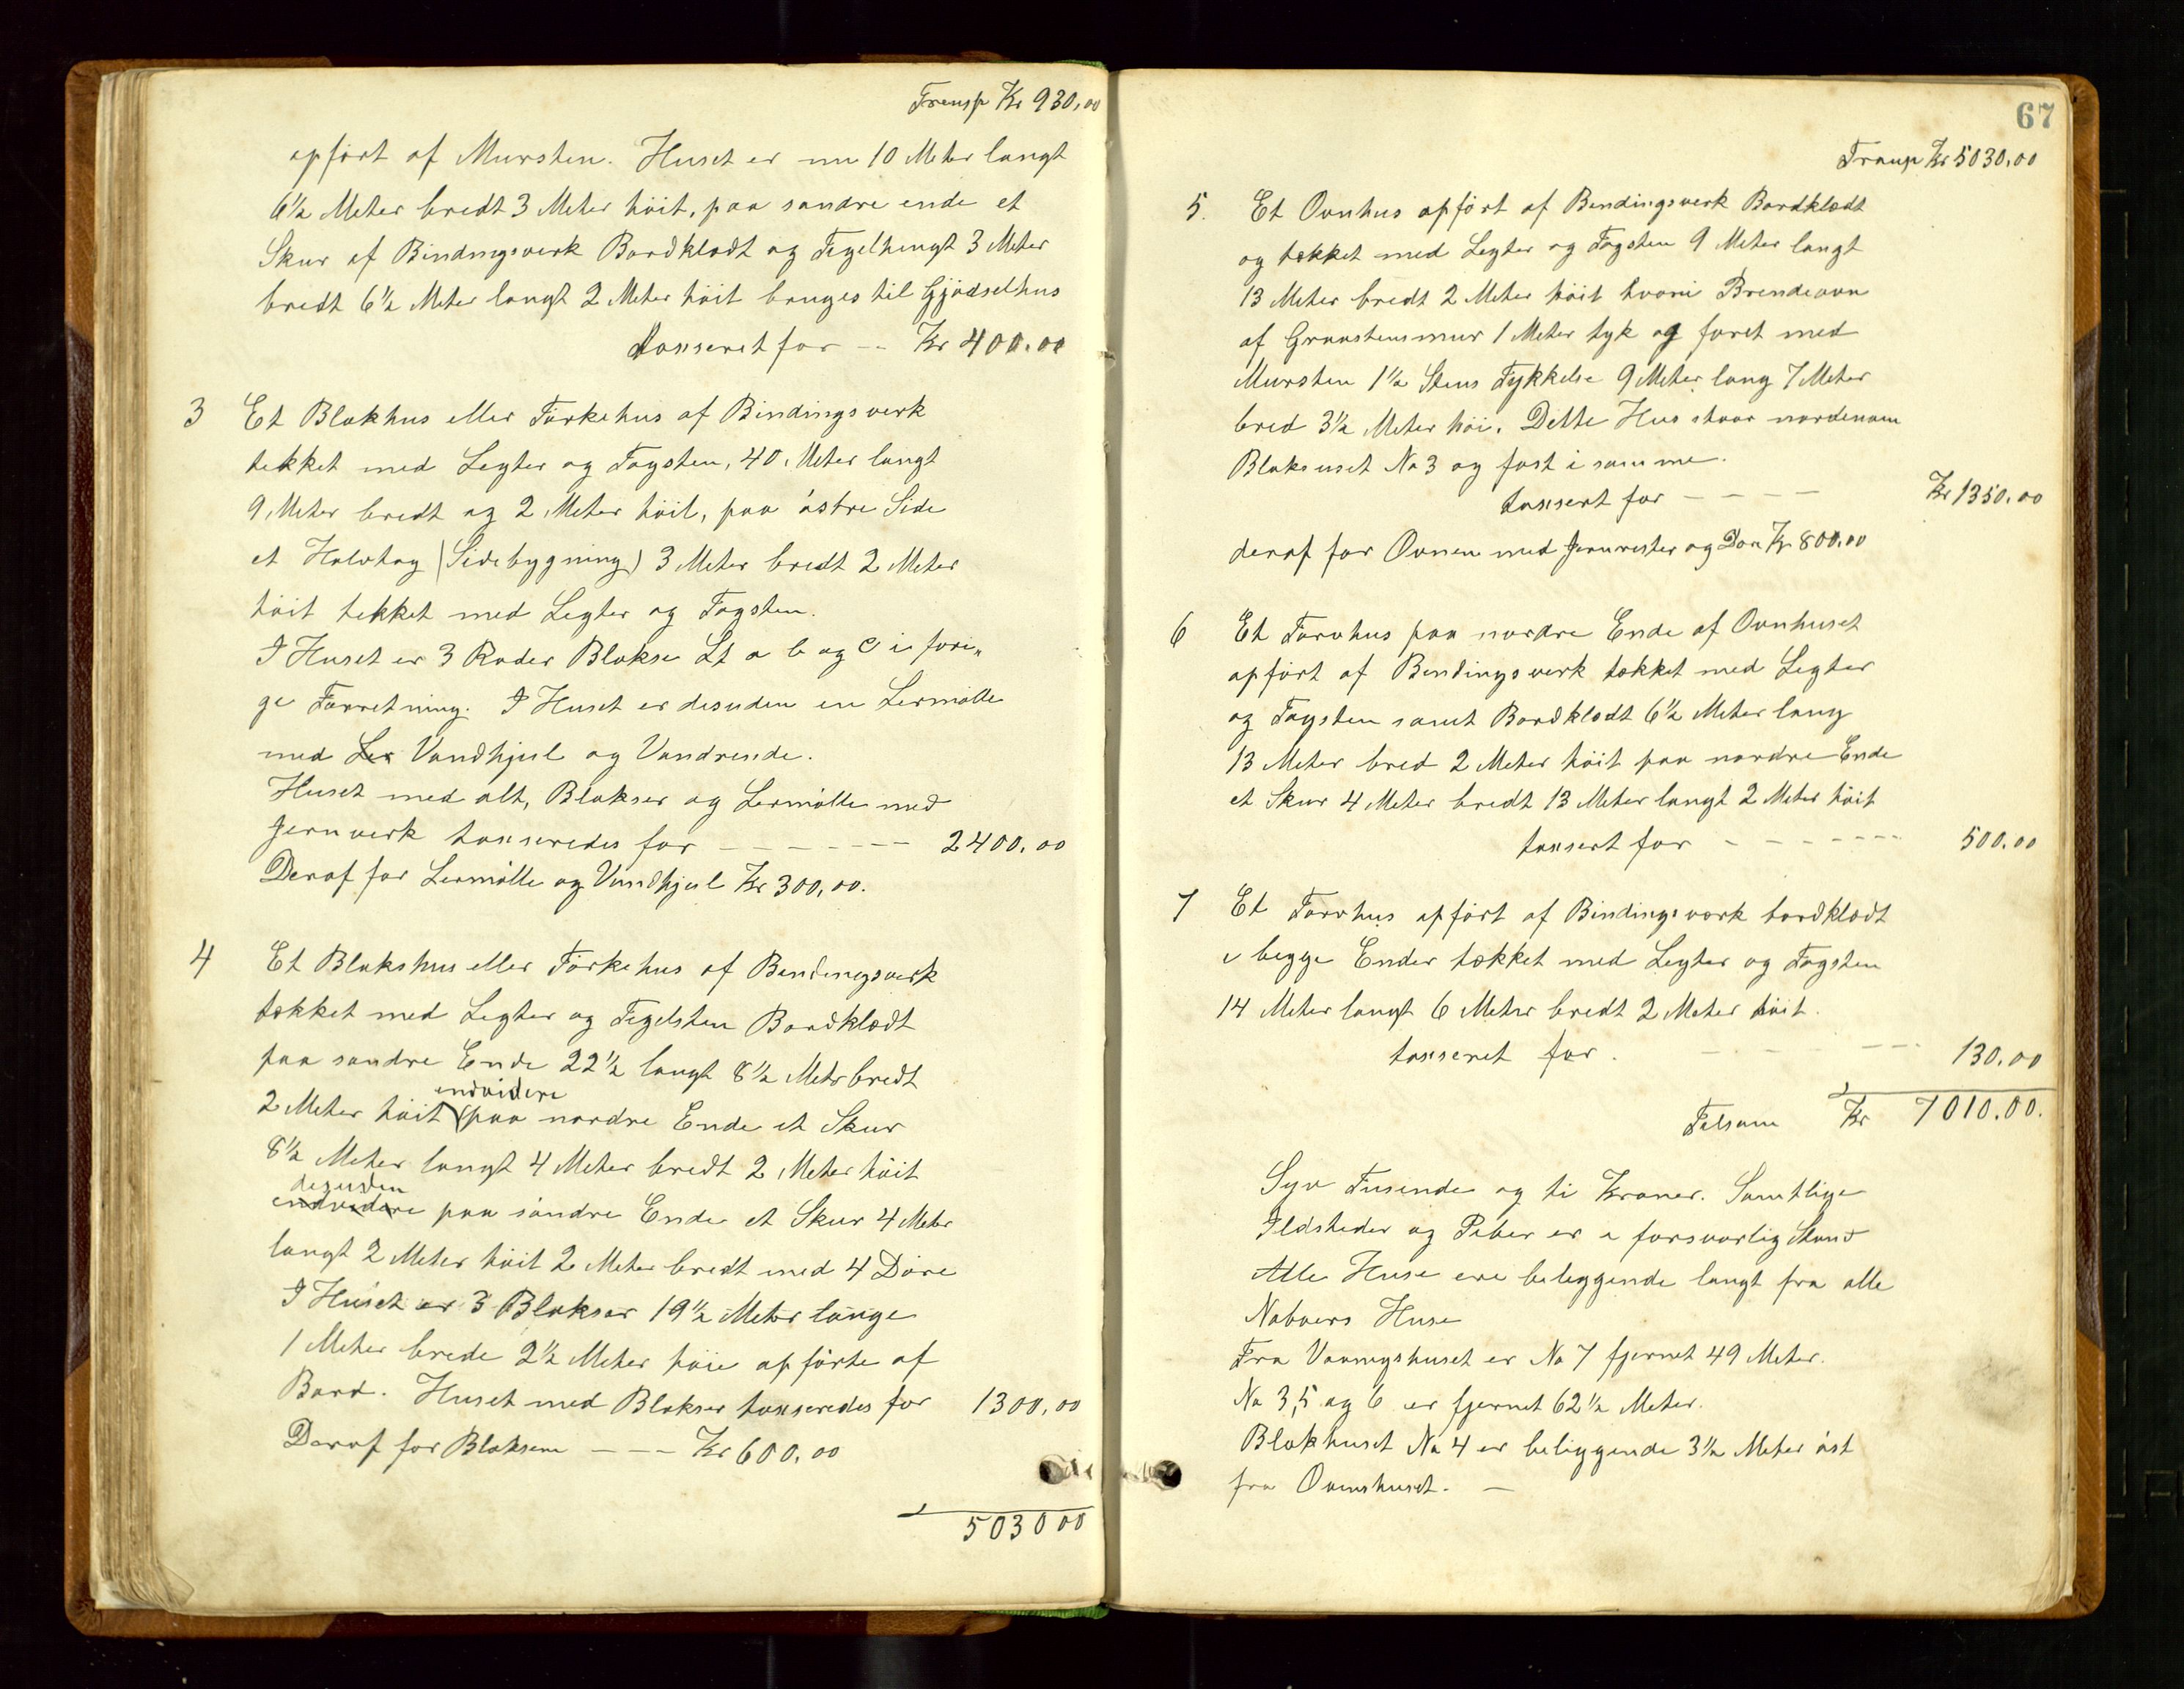 Transp Kr 930,00
opført af Mursten. Huset er nu 10 Meter langt
6½ Meter bredt 3 Meter høit, paa søndre ende et
Skur af Bindingsverk Bordklædt og Tegelhengt 3 Meter
bredt 6½ Meter langt 2 Meter høit bruges til Gjødselhus
taxseret for -- Kr 400.00
3 Et Blokhus eller Tørkehus af Bindingsverk
tekket med Legter og Tagsten, 40 Meter langt
9 Meter bredt og 2 Meter høit, paa østre Side
et Halvtag (Sidebygning) 3 Meter bredt 2 Meter
høit tekket med Legter og Tagsten.
I Huset er 3 Rader Blokse Lt a b og c i fori„
ge Forretning. I Huset er desuden en Lermølle
med Ler Vandhjul og Vandrende.
Huset med alt, Blokser og Lermølle med
Jernverk taxseredes for ------- 2400.00
Deraf for Lermølle og Vandhjul Kr 300,00.
4 Et Blokshus eller Tørkehus af Bendingsverk
tækket med Legter og Tegelsten Bordklædt
paa søndre Ende 22½ langt 8½ Meter bredt
endvidere
2 Meter høit paa nordre Ende et Skur
8½ Meter langt 4 Meter bredt 2 Meter høit
desuden
endvidere paa søndre Ende et Skur 4 Meter
langt 2 Meter høit 2 Meter bredt med 4 Døre
I Huset er 3 Blokser 19½ Meter lange
1 Meter brede 2½ Meter høie opførte af
Bord. Huset med Blokser taxseredes for 1300,00
Deraf for Bloksene --- Kr 600,00
5030 00
67
Transp Kr 5030,00
5. Et Ovnhus opført af Bendingsverk Bordklædt
og tækket med Legter og Tagsten 9 Meter langt
13 Meter bredt 2 Meter høit hvori Brendeovn
af Graastensmur 1 Meter tyk og foret med
Mursten 1½ Stens Tykkelse 9 Meter lang 7 Meter
bred 3½ Meter høi. Dette Hus staar nordenom
Bloksuset No 3 og fast i samme.
taxsert for ---- Kr 1350.00
deraf for Ovnen med Jernrister og Kr 800,00
6 Et Torvhus paa nordre Ende af Ovnhuset
opført af Bendingsverk tækket med Legter
og Tagsten samt Bordklædt 6½ Meter lang
13 Meter bred 2 Meter høit paa nordre Ende
et Skur 4 Meter bredt 13 Meter langt 2 Meter høit
taxsert for ------ 500.00
7 Et Torvhus opført af Bindingsverk bordklædt
i begge Ender tækket med Legter og Tagsten
14 Meter langt 6 Meter bredt 2 Meter høit.
taxseret for. ----- 130.00
Tilsam Kr 7010.00.
Syv Tusende og ti Kroner. Samtlige
Ildsteder og Piber er i forsvarlig Stand
Alle Huse ere beleggende langt fra alle
Naboers Huse
Fra Vaaningshuset er No 7 fjernet 49 Meter.
No 3, 5 og 6 er fjernet 62½ Meter.
Blokhuset No 4 er beliggende 3½ Meter øst
fra Ovenshuset. —